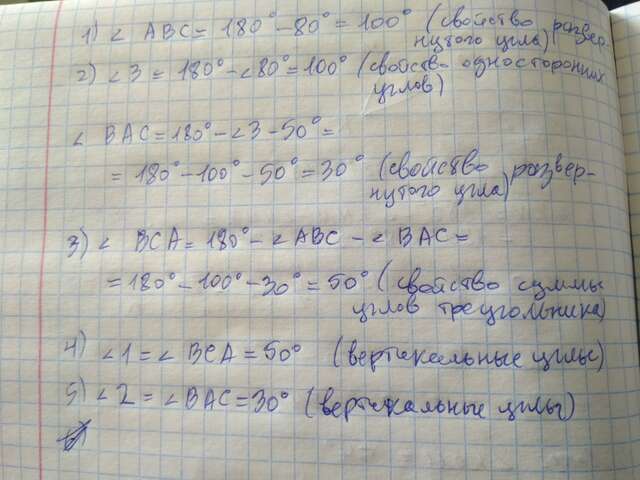 1) ∠ ABC = 180° - 80° = 100° (свойство развер-
нутого угла)
2) ∠3 = 180° - ∠80° = 100° (свойство односторонних
углов)
∠ BAC = 180° - ∠3 - 50° =
= 180° - 100° - 50° = 30° (свойство развер-
нутого угла)
3) ∠ BCA = 180° - ∠ ABC - ∠ BAC =
= 180° - 100° - 30° = 50° (свойство суммы
углов треугольника)
4) ∠1 = ∠ BCA = 50° (вертикальные углы)
5) ∠2 = ∠BAC = 30° (вертикальные углы)